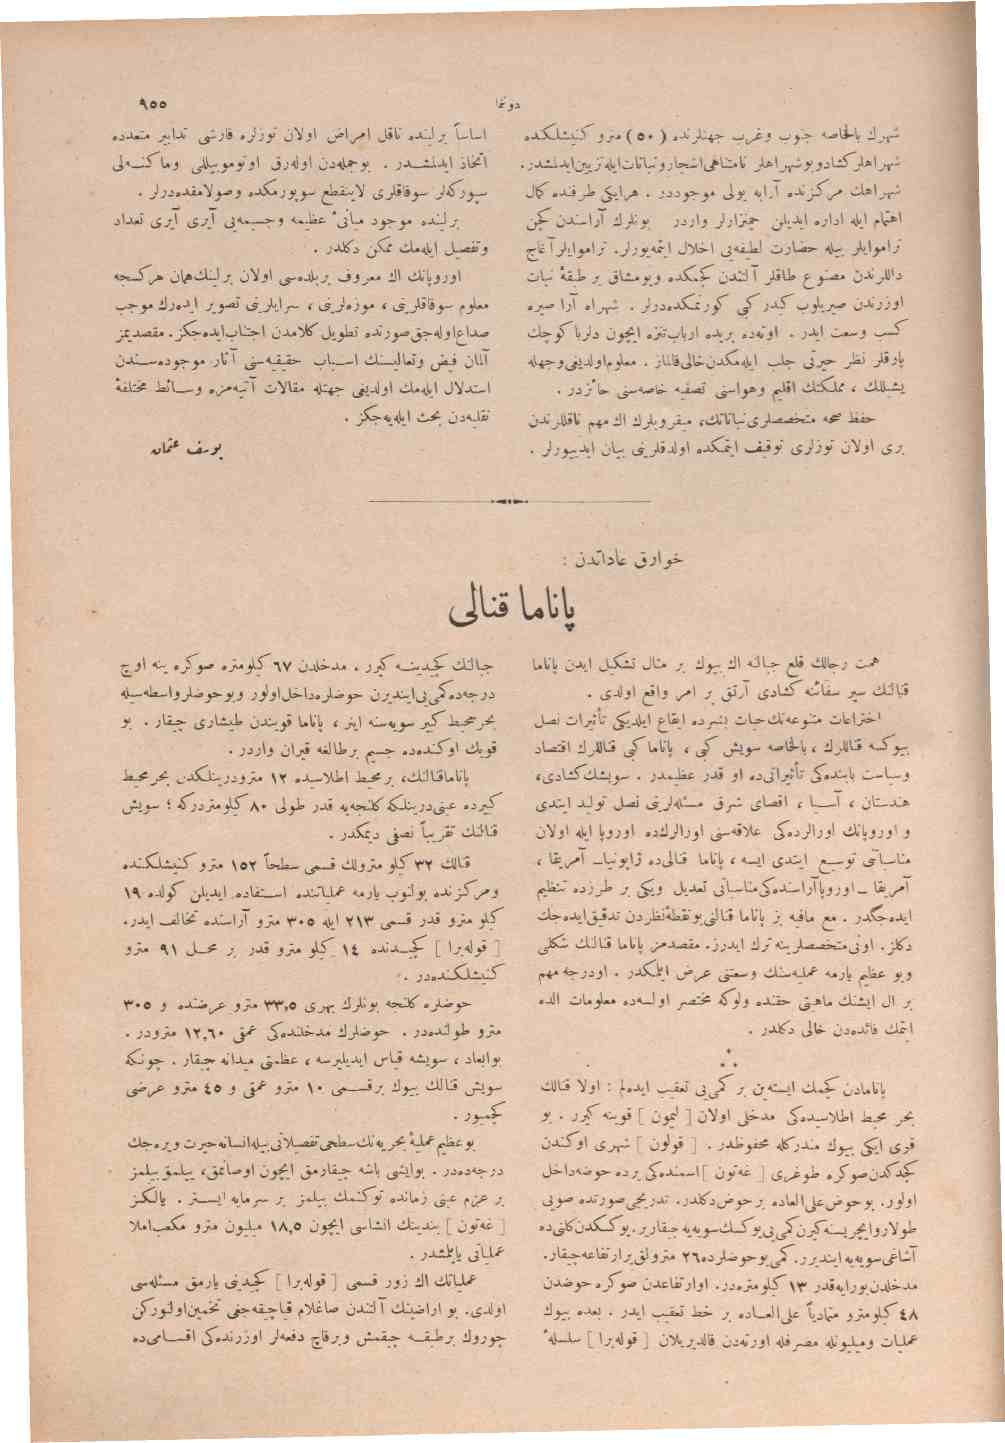 دوننما
٩٥٥
شهرك بالخاصه جنوب وغرب جهتلرنده (٥٠) مترو كنيشلكنده
شهراهلر كشاد و بو شهراهلر نامتناهى اشجار و نباتات ايله تزيين ايدلمشدر.
شهراهك مركزنده آرابه يولى موجوددر . هر ايكى طرفنده كمال
اهتمام ايله اداره ايديلن چمنزارلر واردر بونلرك آراسندن كچن
تراموايلر بيله حضارت لطيفه‌يى اخلال ايتمه‌يورلر. تراموايلر آغاج
داللرندن مصنوع طاقلر آلتندن كچمكده وبومشاق بر طبقهٔ نبات
اوزرندن صيريلوب كيدر كبى كورنمكده‌درلر . شهراه آرا صيره
كسب وسعت ايدر . اوته‌ده بريده ارباب تنزه ايچون دلربا كوچك
پارقلر نظر حيرتى جلب ايله‌مكدن خالى قالماز . معلوم اولديغى وجهله
يشيللك ، مملكتك اقليم وهواسنى تصفيه خاصه‌سنى حائزدر .
حفظ صحه متخصصلرى نباتاتك، ميقروبلرك اك مهم ناقللرندن
برى اولان توزلرى توقيف ايتمكده اولدقلرينى بيان ايدييورلر .
اساساً برلينده ناقل امراض اولان توزلره قارشى تدابير متعدده
اتخاذ ايدلمشدر . بوجمله‌دن اوله‌رق اوتوموبيللى وماكنه‌لى
سپوركه‌لر سوقاقلرى لاينقطع سوپورمكده وصولامقده‌درلر .
برلينده موجود مبانىٔ عظيمه وجسيمه‌يى آيرى آيرى تعداد
وتفصيل ايله‌مك ممكن دكلدر .
اوروپانك اك معروف بربلده‌سى اولان برلينك همان هركسجه
معلوم سوقاقلرينى ، موزه‌لرينى ، سرايلرينى تصوير ايده‌رك موجب
صداع اوله‌جق صورتده تطويل كلامدن اجتناب ايده‌جكز. مقصديمز
آلمان فيض وتعاليسنك اسباب حقيقيه‌سنى آثار موجوده‌سندن
استدلال ايله‌مك اولديغى جهتله مقالات آتيه‌مزه وسائط مختلفهٔ
نقليه‌دن بحث ايله‌يه‌جكز .
يوسف عثمان
خوارق عاداتدن :
پاناما قنالى
همت رجالك قلع جباله اك بيوك بر مثال تشكيل ايدن پاناما
قنالنك سير سفائنه كشادى آرتق بر امر واقع اولدى .
اختراعات متنوعه‌نك حيات بشرده ايقاع ايلديكى تأثيرات نصل
بيوكسه قناللرك ، بالخاصه سويش كبى ، پاناما كبى قناللرك اقتصاد
وسياست بابنده‌كى تأثيراتى‌ده او قدر عظيمدر . سويشك كشادى،
هندستان ، آسيا ، اقصاى شرق مسئله‌لرينى نصل توليد ايتدى
و اوروپانك اورالرده‌كى علاقه‌سنى اورالرك‌ده اوروپا ايله اولان
مناسباتى توسيع ايتدى ايسه ، پاناما قنالى‌ده ژاپونيا ـ آمريقا ،
آمريقا ـ اوروپا آراسنده‌كى مناسباتى تعديل ويكى بر طرزده تنظيم
ايده‌جكدر . مع مافيه بز پاناما قنالنى بو نقطهٔ نظردن تدقيق ايده‌جك
دكلز. اونى متخصصلرينه ترك ايدرز. مقصدمز پاناما قنالنك شكلى
وبو عظيم يارمه عمليه‌سنك وسعتنى عرض ايتمكدر . اودرجه مهم
بر ال ايشنك ماهيتى حقنده ولوكه مختصر اولسه‌ده معلومات الده
ايتمك فائده‌دن خالى دكلدر .
* * *
پانامادن كچمك ايسته‌ين بر كمى‌يى تعقيب ايده‌لم : اولا قنالك
بحر محيط اطلاسيده‌كى مدخلى اولان [ ليمون ] قوينه كيرر . بو
قوى ايكى بيوك مندركله محفوظدر . [ قولون ] شهرى اوكندن
كچدكدن صوكره طوغرى [ غه‌تون ] اسمنده‌كى برده حوضه داخل
اولور. بوحوض على العاده برحوض دكلدر. تدريجى صورتده صويى
طولار و ايچريسنه كيرن كمى‌يى يوكسك سويه‌يه چيقارير. يوكسكدن كلنى‌ده
آشاغى سويه‌يه اينديرر. كمى بوحوضلرده ٢٦ مترولق بر ارتفاعه چيقار.
مدخلدن بورايه قدر ١٣ كيلومتره‌در. اوارتفاعدن صوكره حوضدن
٤٨ كيلومترو متمادياً على العاده بر خط تعقيب ايدر . بعده بيوك
عمليات وميليونله مصرفله اورته‌دن قالديريلان [ قوله‌برا ] سلسلهٔ
جبالنك كچيدينه كيرر . مدخلدن ٦٧ كيلومتره صوكره ينه اوچ
درجه‌ده كمى‌يى اينديرن حوضلره داخل اولور وبوحوضلر واسطه‌سيله
بحر محيط كبير سويه‌سنه اينر ، پاناما قويندن طيشارى چيقار . بو
قوينك اوكنده‌ده جسيم برطالغه قيران واردر .
پاناما قنالنك، بر محيط اطلاسيده ١٢ مترو درينلكدن بحر محيط
كبيرده عينى درينلكه كلنجه‌يه قدر طولى ٨٠ كيلومتردركه ؛ سويش
قنالنك تقريباً نصفى ديمكدر .
قنالك ٣٢ كيلو مترولك قسمى سطحاً ١٥٢ مترو كنيشلكنده
ومركزنده بولنوب يارمه عملياتنده استفاده ايديلن كولده ١٩
كيلو مترو قدر قسمى ٢١٣ ايله ٣٠٥ مترو آراسنده تخالف ايدر.
[ قوله‌برا ] كچيدنده ١٤ كيلو مترو قدر بر محل ٩١ مترو
كنيشلكنده‌در .
حوضلره كلنجه بونلرك بهرى ٣٣,٥ مترو عرضنده و ٣٠٥
مترو طولنده‌در . حوضلرك مدخلنده‌كى عمقى ١٢,٦٠ مترودر .
بوابعاد ، سويشه قياس ايديليرسه ، عظمتى ميدانه چيقار . چونكه
سويش قنالك بيوك برقسمى ١٠ مترو عمقى و ٤٥ مترو عرضى
كچميور .
بوعظيم عمليهٔ بحريه‌نك سطحى تفصيلاتى بيله انسانه حيرت ويره‌جك
درجه‌ده‌در . بوايشى باشه چيقارمق ايچون اوصانمق، ييلمق بيلمز
بر عزم عينى زمانده توكنمك بيلمز بر سرمايه ايستر . يالكز
[ غه‌تون ] بندينك انشاسى ايچون ١٨,٥ ميليون مترو مكعب املا
عملياتى ياپلمشدر .
عملياتك اك زور قسمى [ قوله‌برا ] كچيدينى يارمق مسئله‌سى
اولدى. بو اراضينك آلتندن صاغلام قيا چيقه‌جغى تخمين اولنوركن
چوروك برطبقه چيقمش وبرقاچ دفعه‌لر اوزرنده‌كى اقسامى‌ده